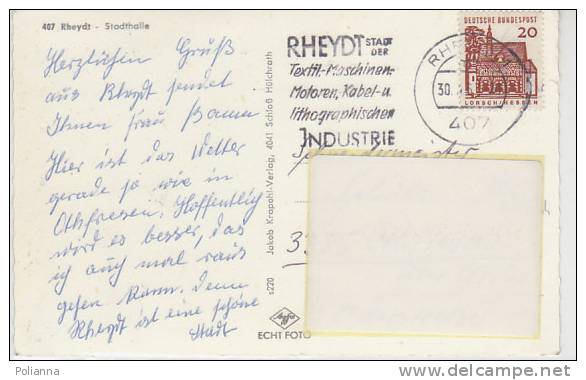 407 Rheydt - Stadthalle
Herzlichen Gruß
aus Rheydt sendet
Ihnen Frau
Hier ist das Wetter
gerade so wie in
Othfresen. Hoffentlich
wird es besser, das
ich auch mal raus
gehen kann. Denn
Rheydt ist eine schöne
Stadt
s220 Jakob Krapohl-Verlag, 4041 Schloß Hülchrath
RHEYDT STADT DER
Textil-Maschinen-
Motoren, Kabel-u.
lithographischen
INDUSTRIE
30.
407
DEUTSCHE BUNDESPOST
20
LORSCH/HESSEN
Agfa
ECHT FOTO
Polianna
delcampe.net